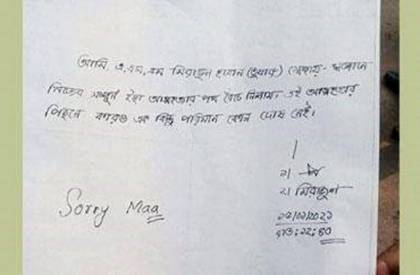 আমি, এ,এস,এম মিরাজুল হাসান (তুষার) স্বেচ্ছায়-স্বজ্ঞানে
নিজের সম্পূর্ণ ইচ্ছা আত্মহত্যার পথ বেঁচে নিলাম। এই আত্মহত্যার
পিছনে কারও এক বিন্দু পরিমান কোন দোষ নেই।
১।
২। মিরাজুল
Sorry Maa